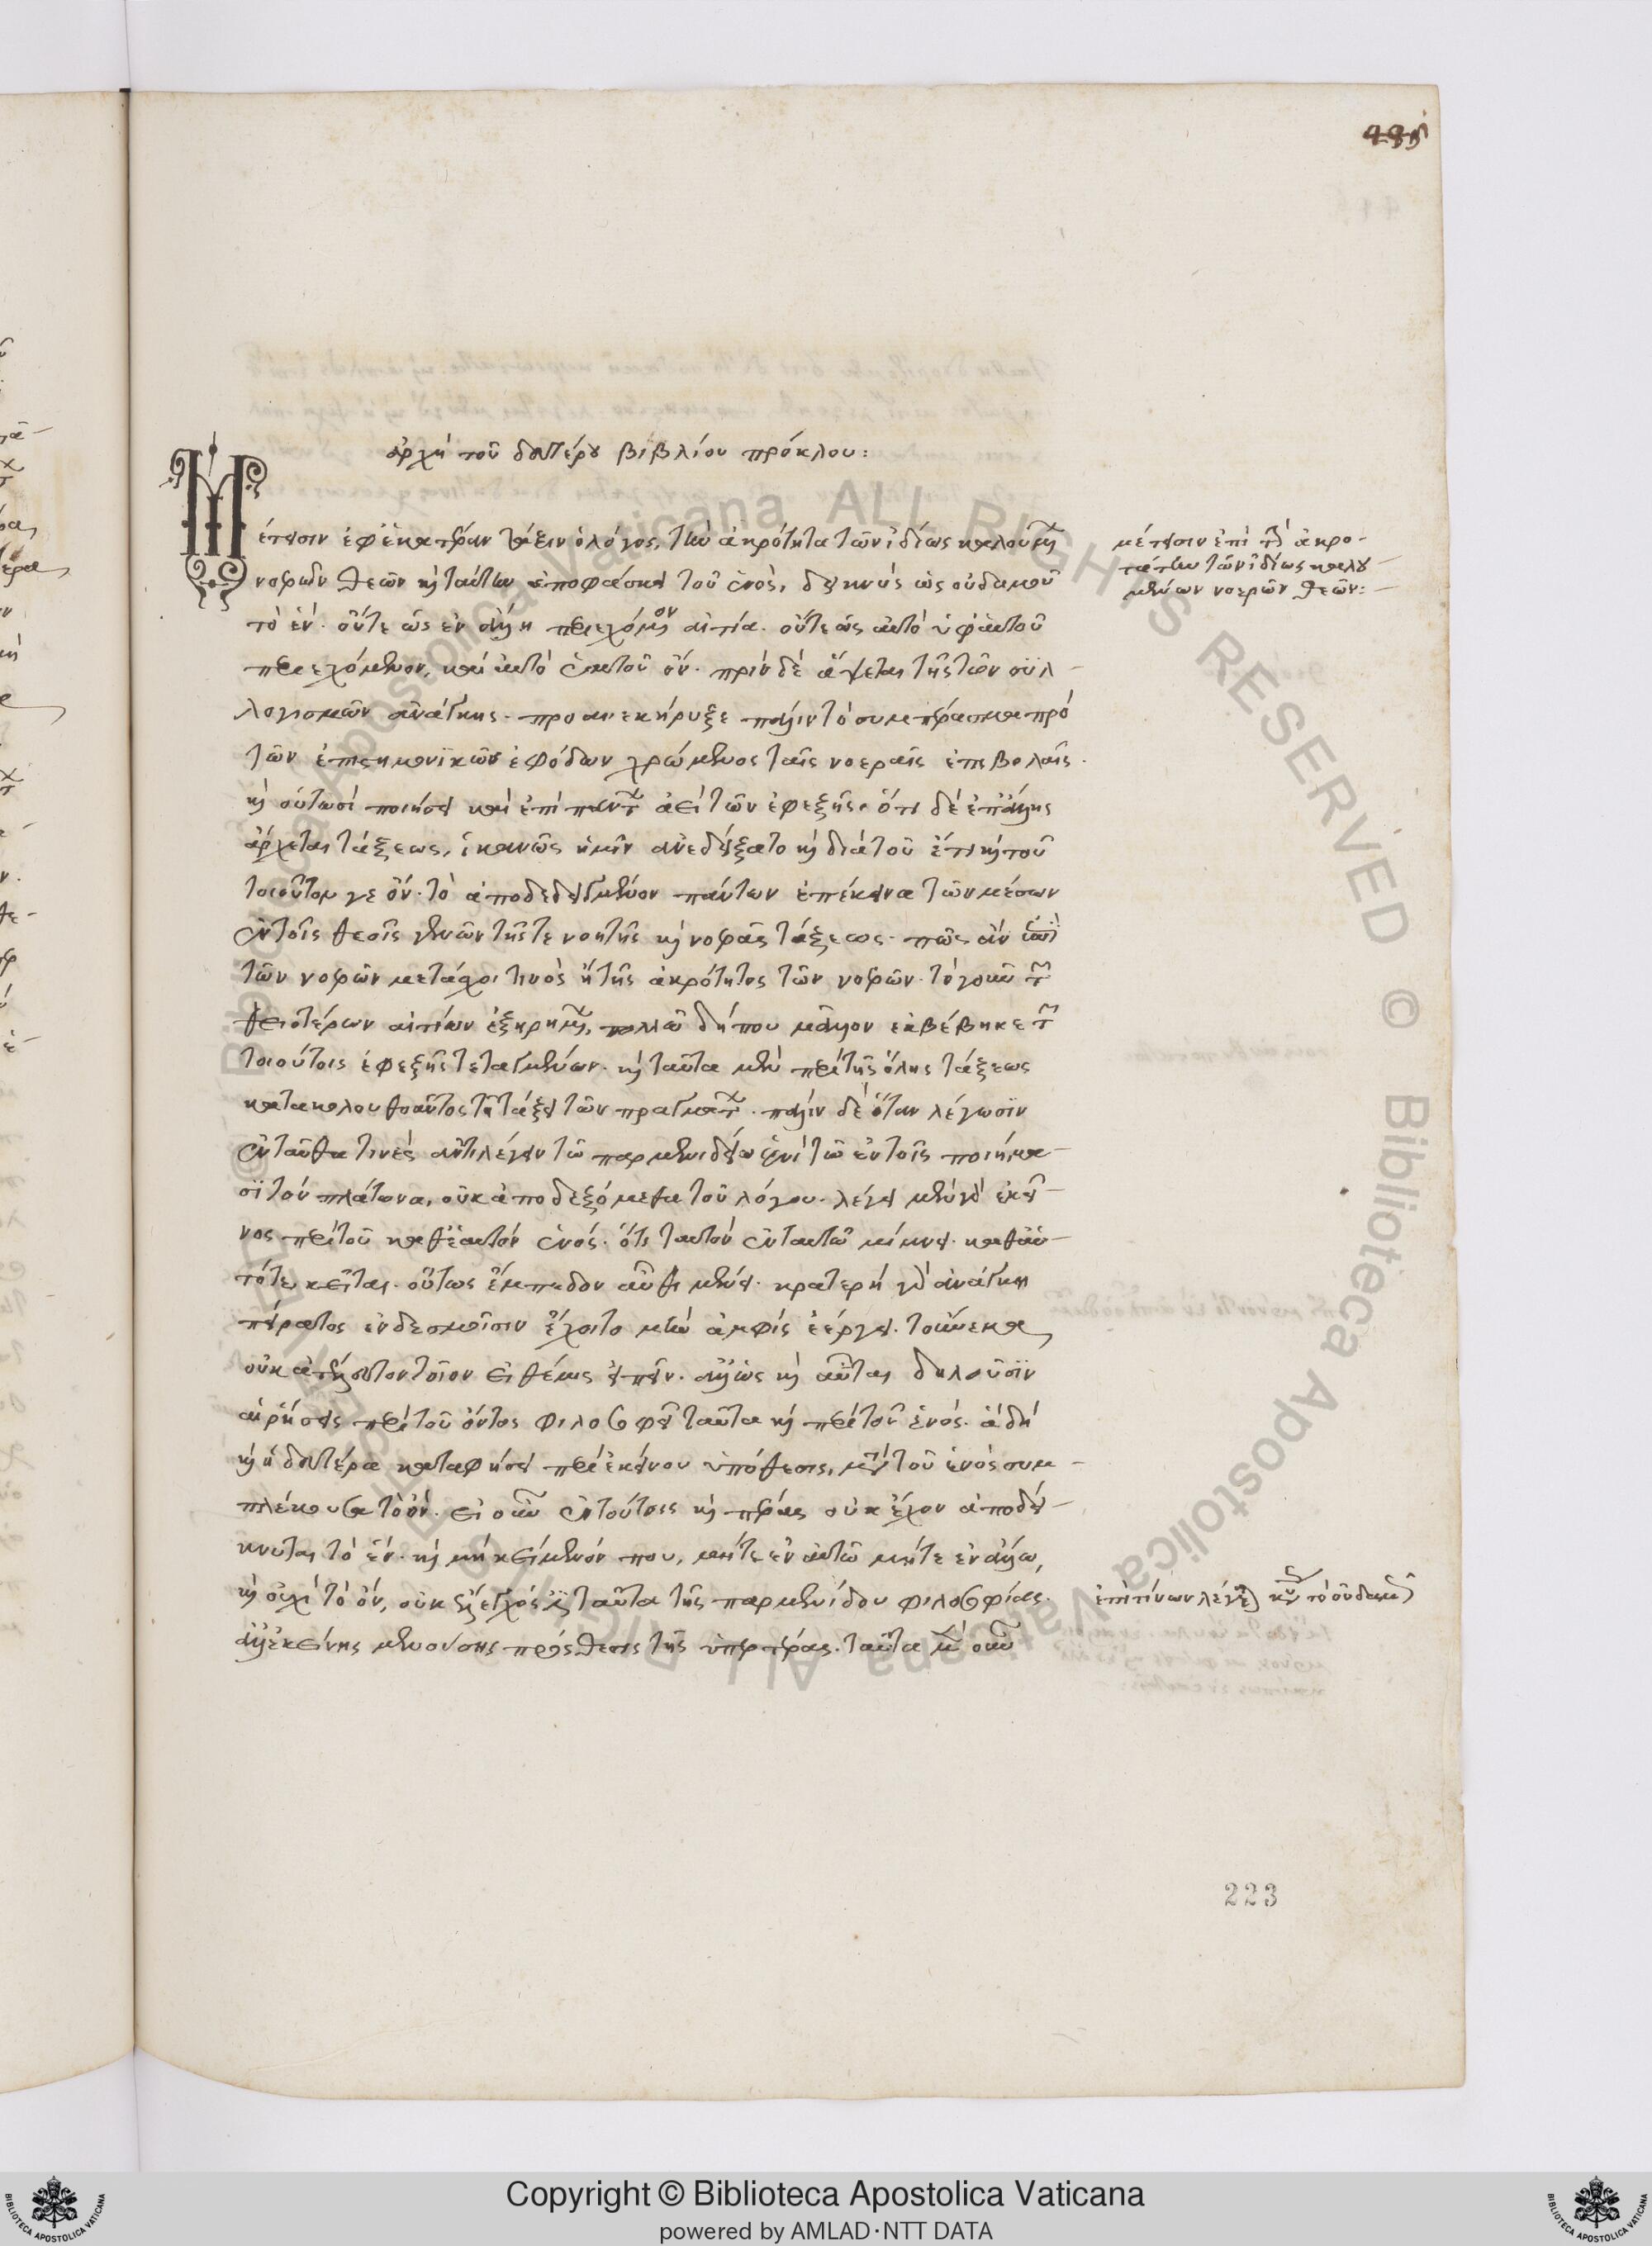 ἀρχὴ τοῦ δευτέρου βιβλίου πρόκλου:
Μέτεισιν ἐφ' ἑκατέραν τάξιν ὁ λόγος, τὴν ἀκρότητα τῶν ἰδίως καλουμένων
νοερῶν θεῶν καὶ ταύτην ἀποφάσκει τοῦ ἑνός, δεικνὺς ὡς οὐδαμοῦ
τὸ ἕν. οὔτε ὡς ἐν ἄλλη περιεχόμενον αἰτία. οὔτε ὡς αὐτὸ ὑφ' αὑτοῦ
περιεχόμενον, καὶ αὐτὸ ἐν αὑτοῦ ὄν. πρὶν δὲ ἅψεται τῆς τῶν συλ-
λογισμῶν ἀνάγκης. προανεκήρυξε πάλιν τὸ συμπέρασμα πρὸ
τῶν ἐπιστημονικῶν ἐφόδων χρώμενος ταῖς νοεραῖς ἐπιβολαῖς.
καὶ οὑτωσὶ ποιήσει καὶ ἐπὶ πάντων ἀεὶ τῶν ἐφεξῆς. ὅτι δὲ ἐπ' ἄλλης
ἄρχεται τάξεως, ἱκανῶς ἡμῖν ἀνεδείξατο καὶ διὰ τοῦ ἔτι καὶ τοῦ
τοιοῦτον γε ὄν. τὸ ἀποδεδειγμένον πάντων ἐπέκεινα τῶν μέσων
ἐν τοῖς θεοῖς γενῶν τῆς τε νοητῆς καὶ νοερᾶς τάξεως. πῶς ἂν
τῶν νοερῶν μετάσχοι τινὸς ἢ τῆς ἀκρότητος τῶν νοερῶν. τὸ γοῦν τῶν
θειοτέρων αἰτίων ἐξηρημένον, πολλῶ δήπου μᾶλλον ἐκβέβηκε τῶν
τοιούτοις ἐφεξῆς τεταγμένων. καὶ ταῦτα μὲν περὶ τῆς ὅλης τάξεως
κατακολουθοῦντος τῆ τάξει τῶν πραγμάτων. πάλιν δὲ ὅταν λέγωσιν
ἐνταῦθα τινὲς ἀντιλέγειν τῶ παρμενιδείω ἑνὶ τῶ ἐν τοῖς ποιήμα-
σι τὸν πλάτωνα, οὐκ ἀποδεξόμεθα τοῦ λόγου. λέγει μὲν γὰρ ἐκεῖ-
νος περὶ τοῦ καθ' ἑαυτὸν ἑνός. ὅτι ταυτὸν ἐν ταυτῶ μίμνει. καθ' ἑαυ-
τό τε κεῖται. οὕτως ἔμπεδον αὖθι μένει. κρατερὴ γὰρ ἀνάγκη
πείρατος ἐν δεσμοῖσιν ἔχοιτο μὴν ἀμφὶς ἐέργει. τοὔνεκα
οὐκ ἀτελεύτητον τὸ ἐὸν εἰ θέμις εἰπεῖν. ἀλλ' ὡς καὶ αὗται δηλοῦσιν
αἱ ῥήσεις περὶ τοῦ ὄντος φιλοσοφεῖ ταῦτα καὶ περὶ τοῦ ἑνός. ἃ δὴ
καὶ ἡ δευτέρα καταφήσει περὶ ἐκείνου ὑπόθεσις, μετὰ τοῦ ἑνὸς συμ-
πλέκουσα τὸ ὄν. εἰ οὖν ἐν τούτοις καὶ πέρας οὐκ ἔχον ἀποδεί-
κνυται τὸ ἕν. καὶ μὴ κείμενόν που, μήτε ἐν αὑτῶ μήτε ἐν ἄλλω,
καὶ οὐχὶ τὸ ὄν, οὐκ ἔλεγχός ἐστι ταῦτα τῆς παρμενίδου φιλοσοφίας.
ἀλλ' ἐκείνης μενούσης πρόσθεσις τῆς ὑπερτέρας. ταῦτα μὲν οὖν
μέτεισιν ἐπὶ τὴν ἀκρο-
τάτην τῶν ἰδίως καλου-
μένων νοερῶν θεῶν:
ἐπὶ τίνων λέγεται τὸ οὐδαμοῦ
223